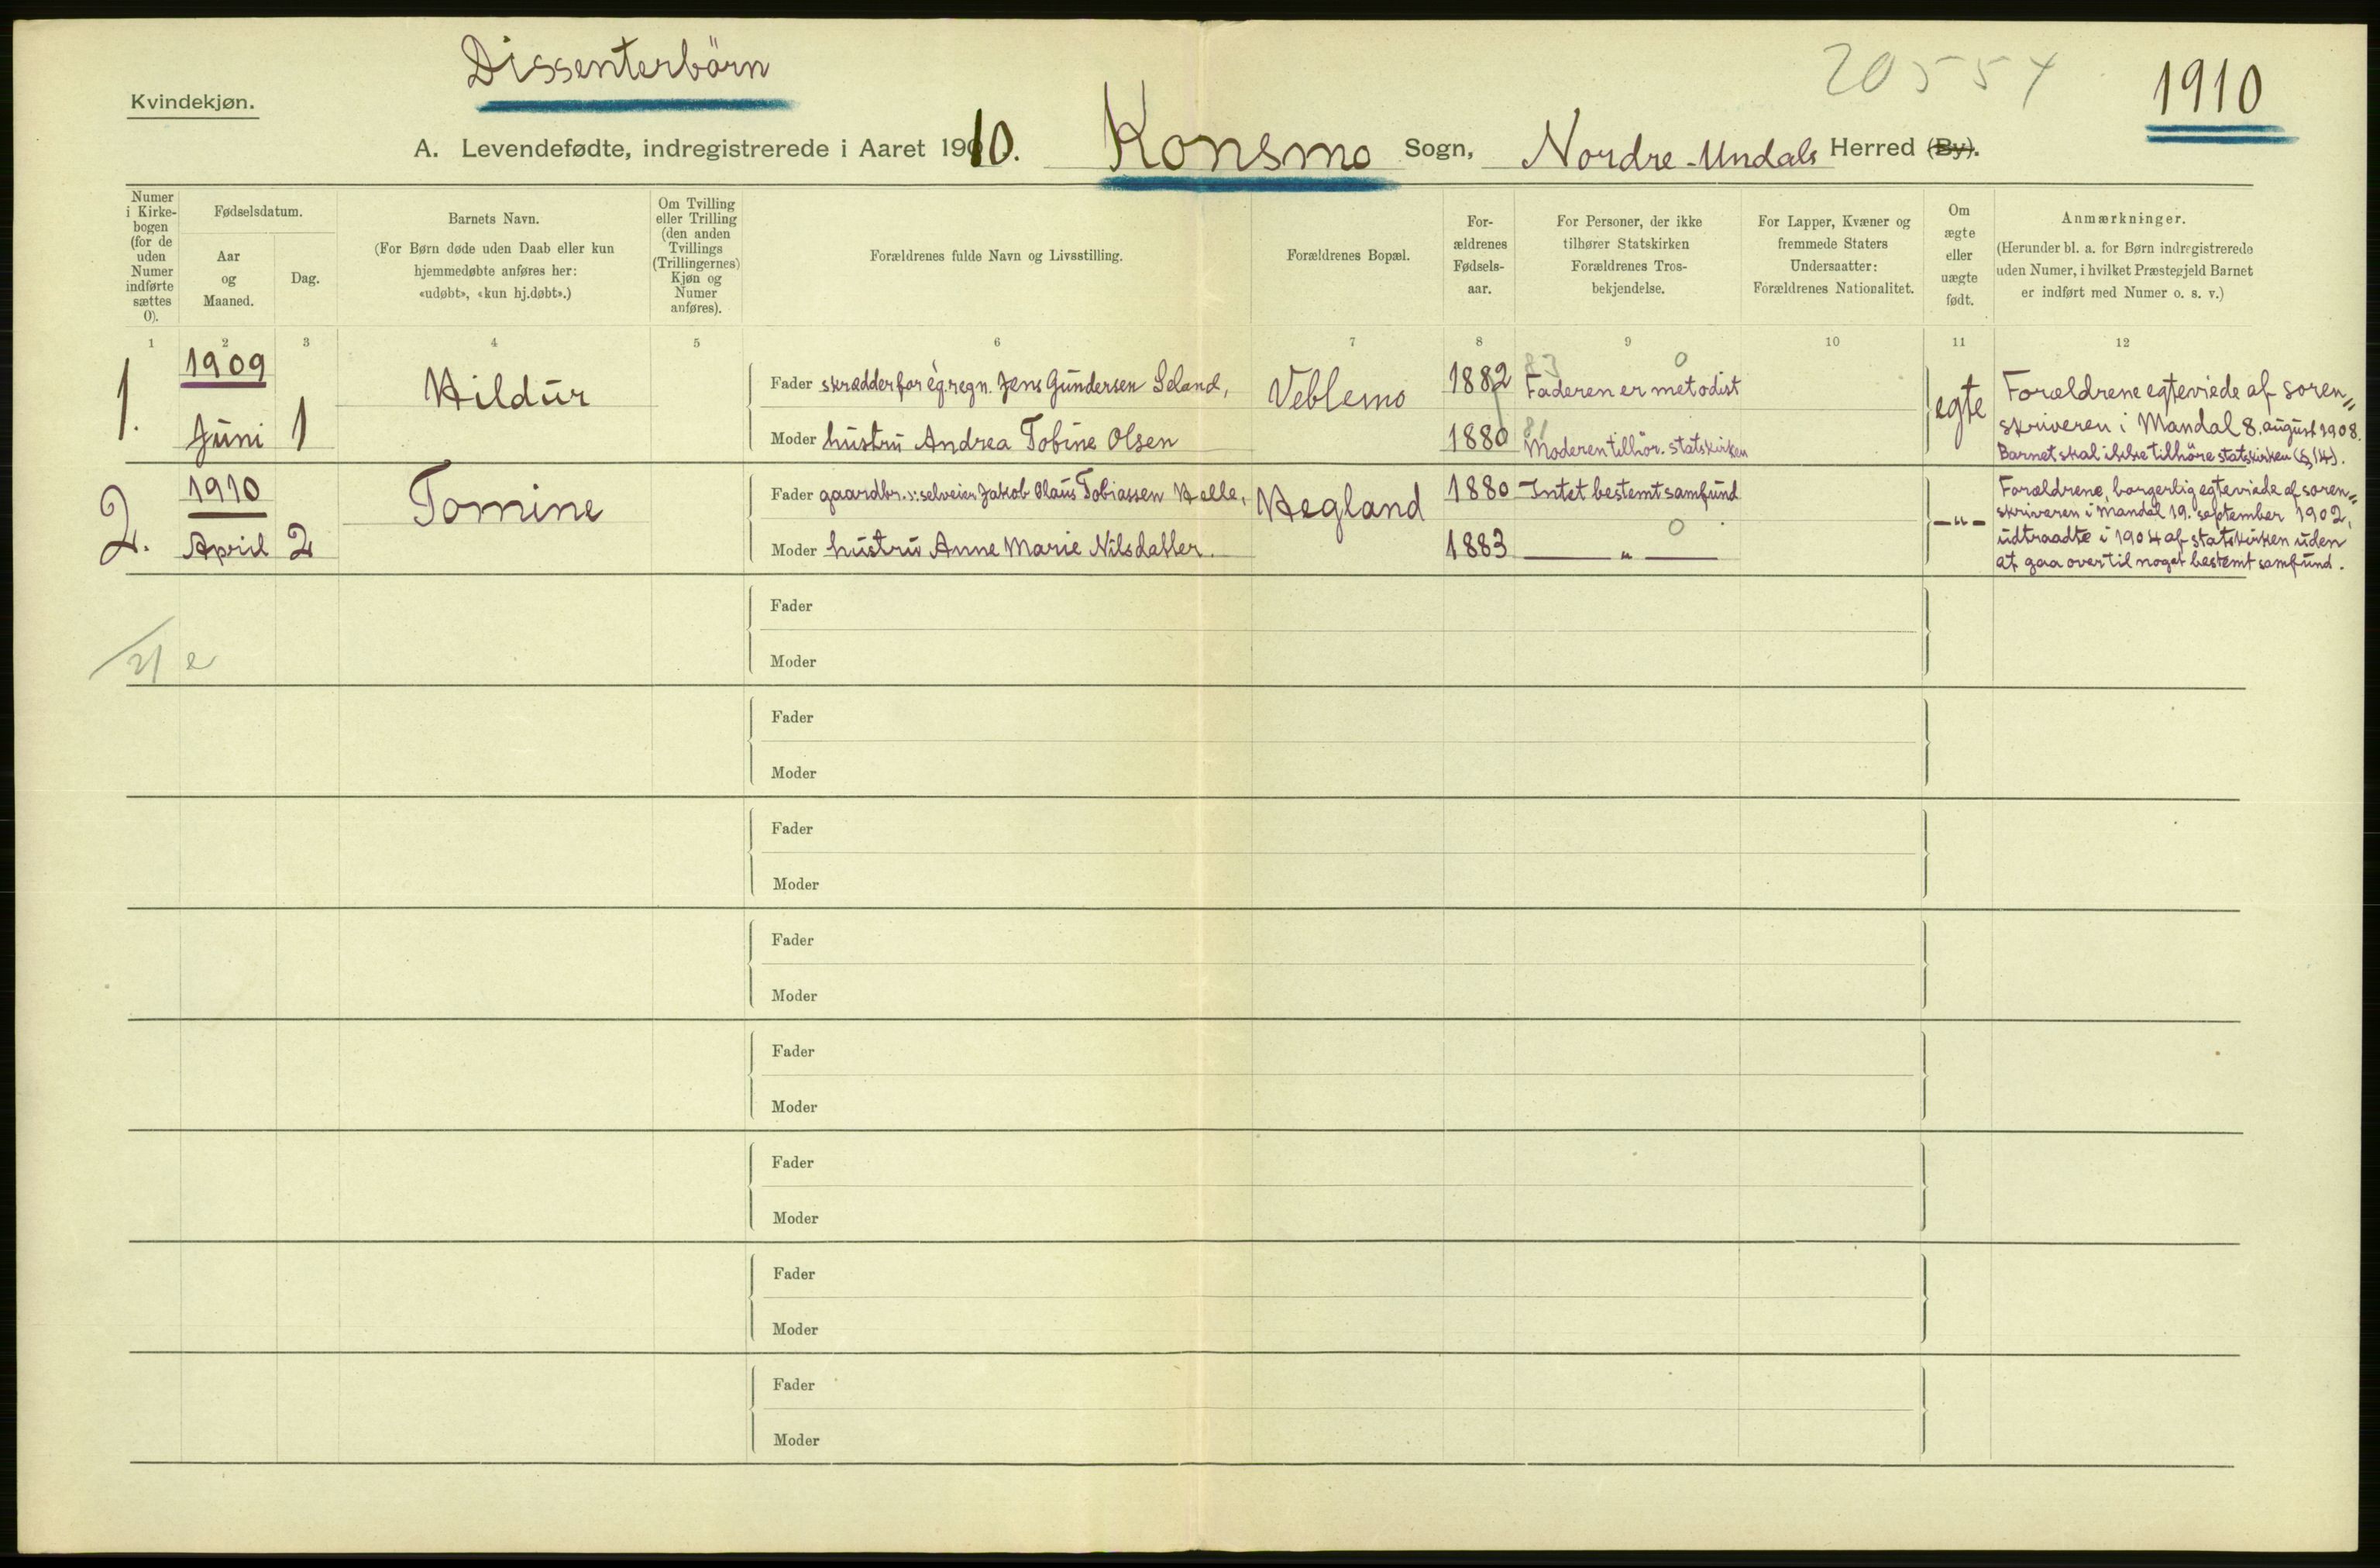 Dissenterbörn
20554
1910
Kvindekjøn.
A. Levendefødte, indregistrerede i Aaret 1910. Konsmo Sogn, Nordre-Undals Herred (By).
Numer i Kirke-bogen (for de uden Numer indførte sættes 0).
Fødselsdatum.
Aar og Maaned.
Dag.
Barnets Navn.
(For Børn døde uden Daab eller kun hjemmedøbte anføres her: «udøbt», «kun hj.døbt».)
Om Tvilling eller Trilling (den anden Tvillings (Trillingernes) Kjøn og Numer anføres).
Forældrenes fulde Navn og Livsstilling.
Forældrenes Bopæl.
For-ældrenes Fødsels-aar.
For Personer, der ikke tilhører Statskirken Forældrenes Tros-bekjendelse.
For Lapper, Kvæner og fremmede Staters Undersaatter: Forældrenes Nationalitet.
Om ægte eller uægte født.
Anmærkninger.
(Herunder bl. a. for Børn indregistrerede uden Numer, i hvilket Præstegjeld Barnet er indført med Numer o. s. v.)
1 2 3 4 5 6 7 8 9 10 11 12
1. 1909 Juni 1 Hildur
Fader skrædder for eg. regn. Jens Gundersen Seland, Veblemo 1882 83 0 Faderen er metodist
Moder hustru Andrea Tobine Olsen 1880 81 Moderen tilhör. statskirken
egte
Forældrene egteviede af soren„
skriveren i Mandal 8. august 1908.
Barnet skal ikke tilhöre statskirken (§ 14).
2. 1910 April 2 Tomine
Fader gaardbr. s: selveier Jakob Olaus Tobiassen Helle, Hegland 1880 Intet bestemt samfund
Moder hustru Anne Marie Nilsdatter. 1883 — " — 0
— " —
Forældrene, borgerlig egteviede af soren„
skriveren i Mandal 19. september 1902,
udtraadte i 1904 af statskirken uden
at gaa over til noget bestemt samfund.
Fader
Moder
2/ e
Fader
Moder
Fader
Moder
Fader
Moder
Fader
Moder
Fader
Moder
Fader
Moder
Fader
Moder